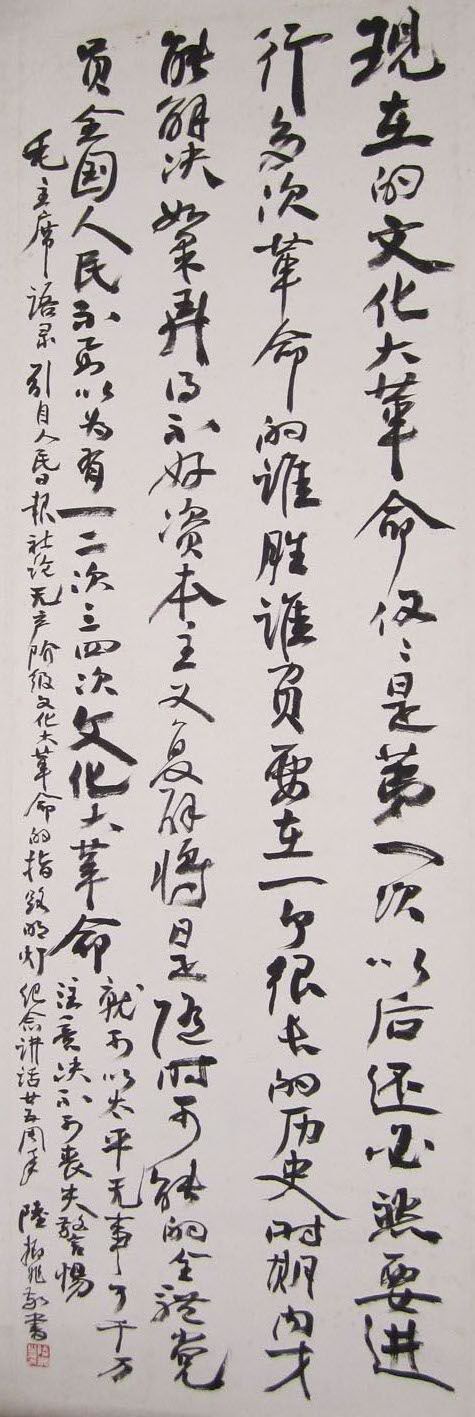 现在的文化大革命仅〻是第一次以后还必然要进
行多次革命的谁胜谁负要在一个很长的历史时期内才
能解决如果弄得不好资本主义复辟将是随时可能的全體党
员全国人民不要以为有一二次三四次文化大革命
就可以太平无事了千万
注意决不可丧失警惕
毛主席语录引自人民日报社论无产阶级文化大革命的指路明灯纪念讲话廿五周年 陸抑非敬書